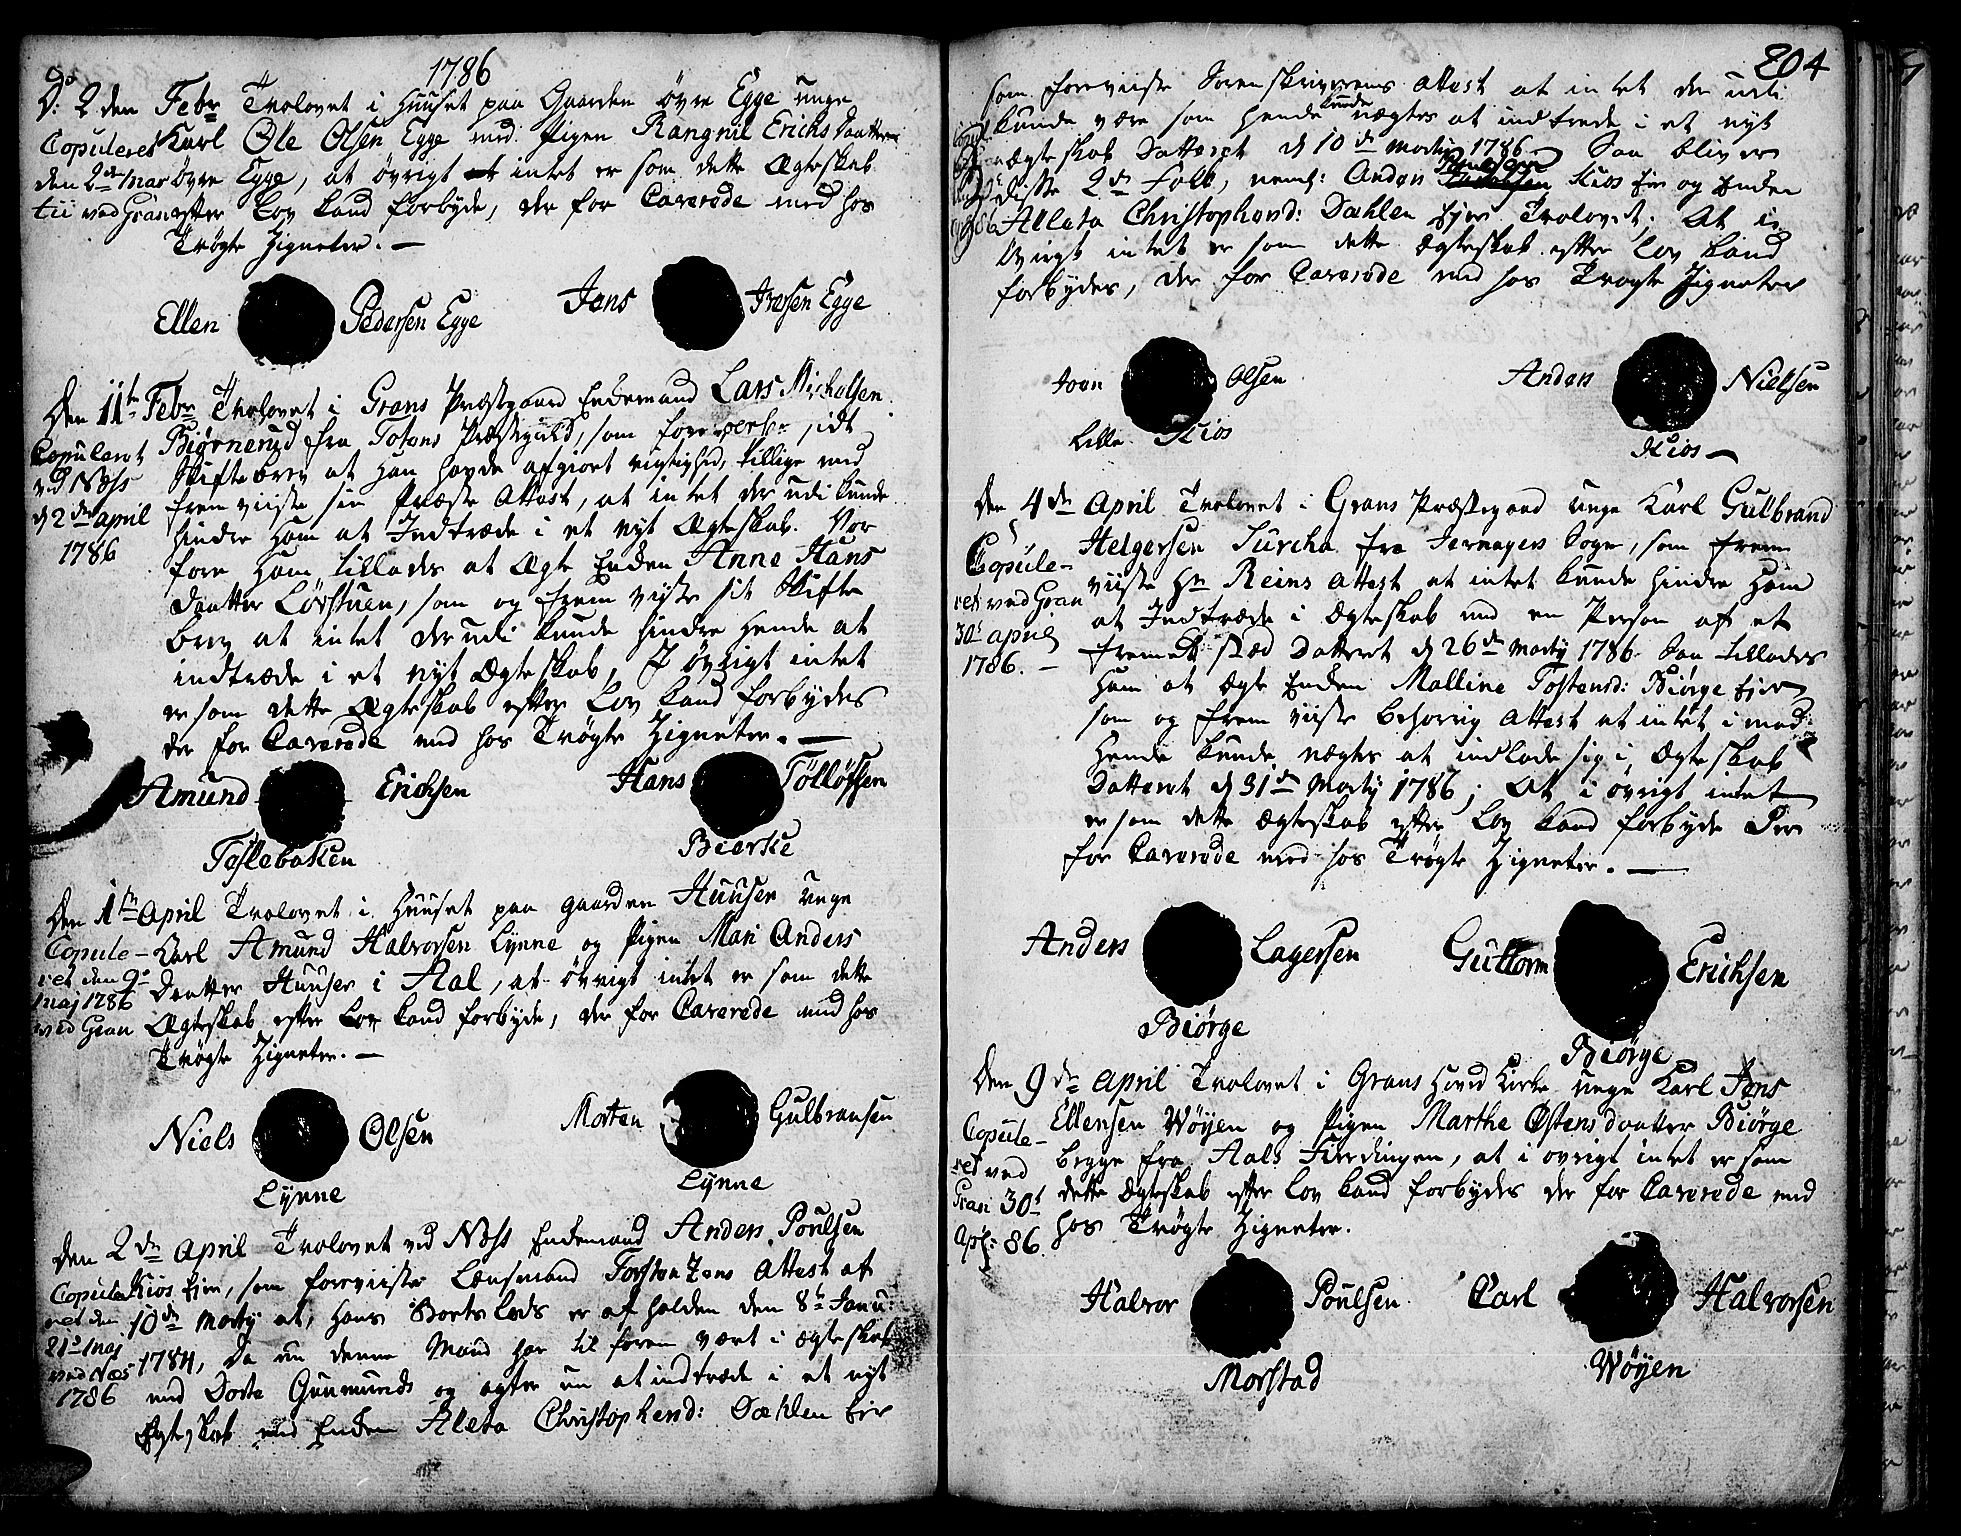 1786
D: 2 den Febr Trolovet i Huuset paa Gaarden øvre Egge unge
Karl Ole Olsen Egge med Pigen Rangnil Erichs Daatter
øvre Egge, at øvrigt intet er som dette Ægteskab
efter Lov kand forbyde, der for Caverede med hos
Trøgte Zigneter. —
Copuleret
den 2de Mar
tii ved Gran
Ellen Pedersen Egge
Jens Iversen Egge
Den 11te Febr Trolovet i Grans Præstegaard Enkemand Lars Nicholsen
Biørnerud fra Totens Præstegield, som foreviiste sidt
Skiftebrev at han havde afgiort rigtighed, tillige med
frem viiste sin Præste Attest, at intet der udi kunde
hindre ham at Indtræde i et nyt Ægteskab. Der
fore ham tillades at Ægte Enken Anne Hans
Daatter Lørstuen, som og frem viiste sit Skifte
brev at intet derudi kunde hindre hende at
indtræde i et nyt Ægteskab, I øvrigt intet
er som dette Ægteskab efter Lov kand forbydes
der for Caverede med hos Trøgte Zigneter. —
Copuleret
ved Næss
d 2den April
1786
Amund Erichsen
Tøslebaken
Hans Tolløfsen
Bierke
Den 1te April Trolovet i Huuset paa gaarden Huuser unge
Karl Amund Halvorsen Lynne og Pigen Mari Anders
Daatter Huuser i Aal, at øvrigt intet er som dette
Ægteskab efter Lov kand forbyde, der for Caverede med hos
Trøgte Zigneter. —
Copule-
ret den 9de
Maj 1786
ved Gran
Niels Olsen
Lynne
Morten Gulbransen
Lynne
Den 2de April Trolovet ved Næss Enkemand Anders Poulsen
Kios Eier, som foreviiste Lænsmand Torsten Zens Attest af
10de Martij at, hans Boets Lods er af holden den 8de Janu:
1784, Da nu denne Mand har til foren vært i ægteskab
med Dorte Gunmunds og agter nu at indtræde i et nyt
Egteskab med Enken Aleta Christophersd: Dæhlen Eier
Copule
ret den
21de Maj
ved Næs
1786
204
som foreviiste Sorenskriverens Attest at intet der udi
kunde være som hende kunde nægtes at indtrede i et nyt
ægteskab Datteret d 10de Martij 1786. Saa bliver
disse 2de Folk, neml: Anders Poulsen Kios Eier og Enken
Alleta Christophersd: Dæhlen Eier Trolovet; At i
øvrigt intet er som dette Ægteskab efter Lov kand
forbydes, der for Caverede med hos Trøgte Zigneter
Joen Olsen
Lille Kios
Anders Nielsen
Kios —
Den 4de April Trolovet i Grans Præstegaard unge Karl Gulbrand
Helgersen Surcka fra Jernagers Sogn, som frem
viiste Hr Reins Attest at intet kunde hindre ham
at Indtræde i Ægteskab med en Person af et
fremed stæd Datteret d 26de Martij 1786. Saa tillades
ham at Ægte Enken Malline Tostensd: Biørge Eier
som og frem viiste behørig Attest at intet i mod
hende kunde nægtes at indlade sig i Ægteskab
Datteret d 31de Martij 1786; At i øvrigt intet
er som dette Ægteskab efter Lov kand forbyde Der
for Caverede med hos Trøgte Zigneter. —
Copule-
ret ved Gran
30te April
1786. —
Anders Lagersen
Biørge
Guttorm Erichsen
Biørge
Den 9de April Trolovet i Grans Hoved Kirke unge Karl Jens
Ellensen Wøyen og Pigen Marthe Østens daatter Biørge
begge fra Aals Fierdingen, at i øvrigt intet er som
dette Ægteskab efter Lov kand forbydes der for Caverede med
hos Trøgte Zigneter.
Copule-
ret ved
Gran 30te
Apl: 86.
Halvor Poulsen
Morstad
Carl Halvorsen
Wøyen